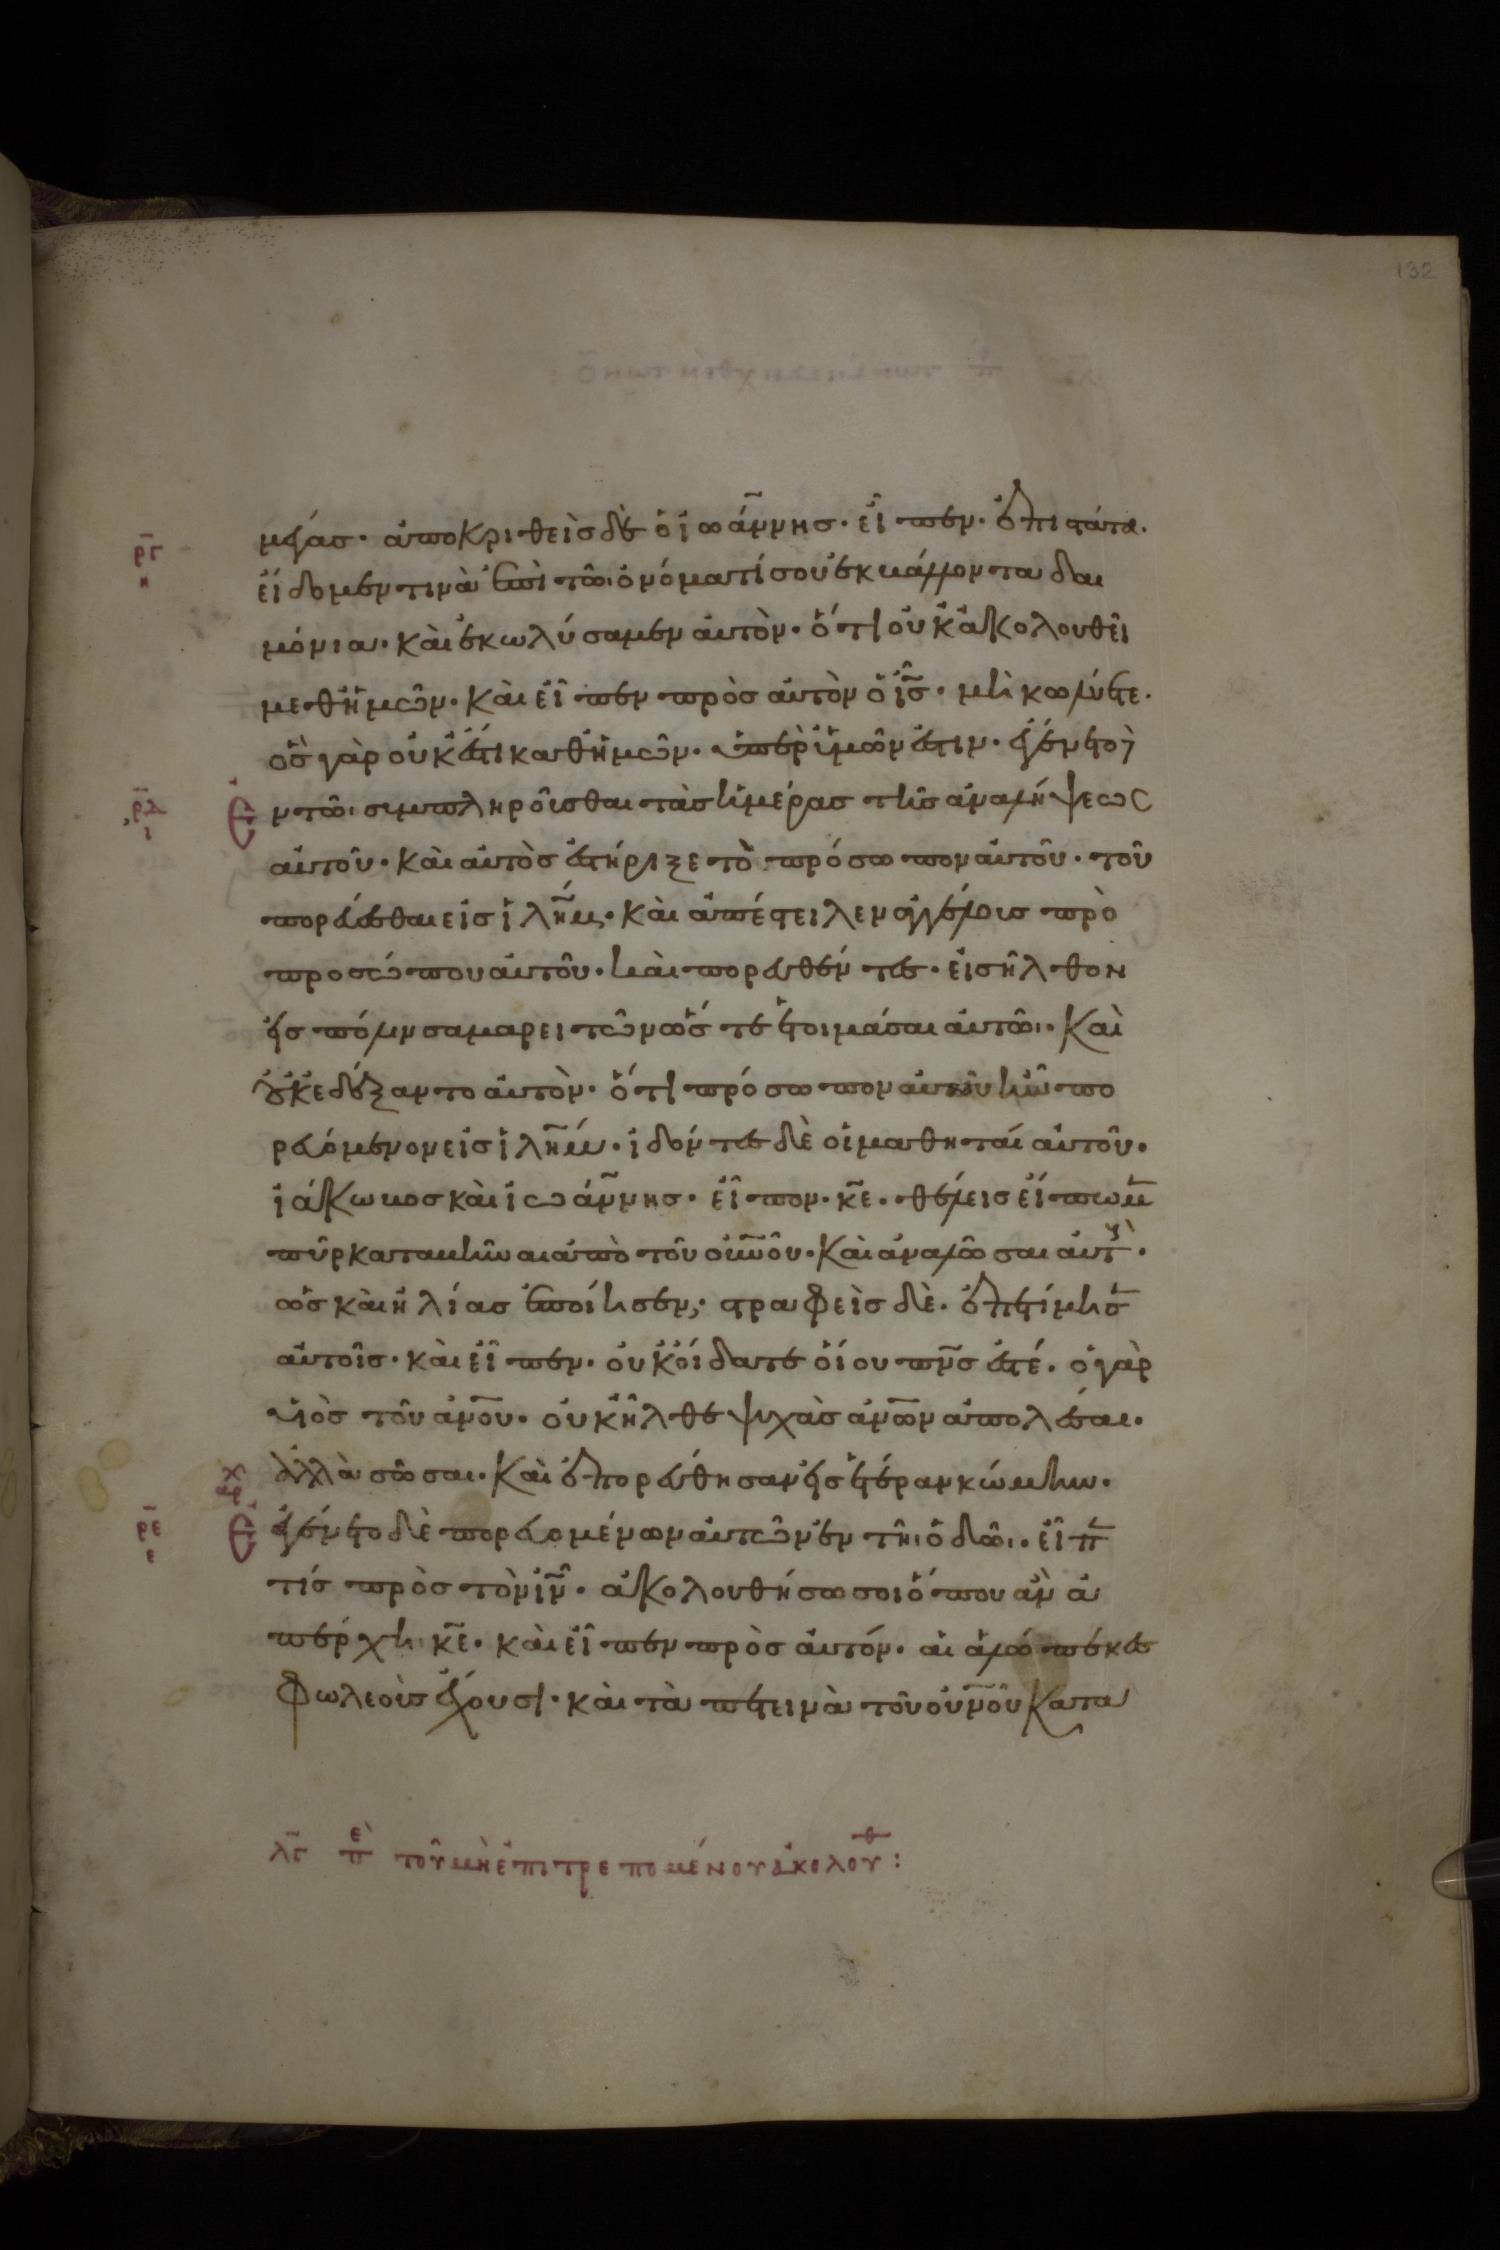 132
ρ̅γ̅
η
μέγας· ἀποκριθεὶς δὲ ὁ ἰωάννης· εἶπεν· ἐπιστάτα·
εἴδομέν τινὰ ἐπὶ τῶι ὀνόματί σου ἐκβάλλοντα δαι
μόνια· καὶ ἐκωλύσαμεν αὐτὸν· ὅτι οὐκ ἀκολουθεῖ
μεθ ἡμῶν· καὶ εἶπεν πρὸς αὐτὸν ὁ ι̅ς̅· μὴ κωλύετε·
ὃς γὰρ οὐκ ἔστι καθ ἡμῶν· ὑπὲρ ἡμῶν ἐστιν· ἐγένετο ἐ
ρ̅δ̅
ι
ν τῶι συμπληροῦσθαι τὰς ἡμέρας τῆς ἀναλήψεως
αὐτοῦ· καὶ αὐτὸς ἐστήριξε τὸ πρόσωπον αὐτοῦ· τοῦ
πορεύεσθαι εἰς ἰ̅λ̅η̅μ̅· καὶ ἀπέστειλεν ἀγγέλους πρὸ
προσώπου αὐτοῦ· καὶ πορευθέντες· εἰσῆλθον
εἰς πόλιν σαμαρειτῶν ὥστε ἑτοιμάσαι αὐτῶι· καὶ
οὐκ ἐδέξαντο αὐτὸν· ὅτι πρόσωπον αὐτοῦ ἦν πο
ρευόμενον εἰς ἰ̅λ̅η̅μ̅· ἰδόντες δὲ οἱ μαθηταί αὐτοῦ·
ἰάκωβος καὶ ἰωάννης· εἶπον· κ̅ε̅· θέλεις εἴπωμ̅
πῦρ καταβῆναι ἀπὸ τοῦ ο̅υ̅ν̅οῦ· καὶ ἀναλῶσαι αὐτοὺ·
ὡς καὶ ἠλίας ἐποίησεν; στραφεὶς δὲ· ἐπετίμησ̅
αὐτοῖς· καὶ εἶπεν· οὐκ οἴδατε οἵου π̅ν̅ς̅ ἐστέ· ὁ γὰρ
υἱὸς τοῦ α̅ν̅ο̅υ̅· οὐκ ἦλθε ψυχὰς α̅ν̅ω̅ν̅ ἀπολέσαι·
ἀλλὰ σῶσαι· καὶ ἐπορεύθησαν εἰς ἑτέραν κώμην·
αρχ
ρ̅ε̅
ε
ἐγένετο δὲ πορευομένων αὐτῶν ἐν τῆι ὁδῶι· εἶπ̅
τίς πρὸς τὸν ι̅ν̅· ἀκολουθήσω σοι ὅπου ἂν ἀ
πέρχη κ̅ε̅· καὶ εἶπεν πρὸς αὐτόν· αἱ ἀλώπεκες
φωλεοὺς ἔχουσι· καὶ τὰ πετεινὰ τοῦ ο̅υ̅ν̅οῦ κατα
λ̅γ̅ πε τοῦ μὴ ἐπιτρεπομένου ἀκολουθ: